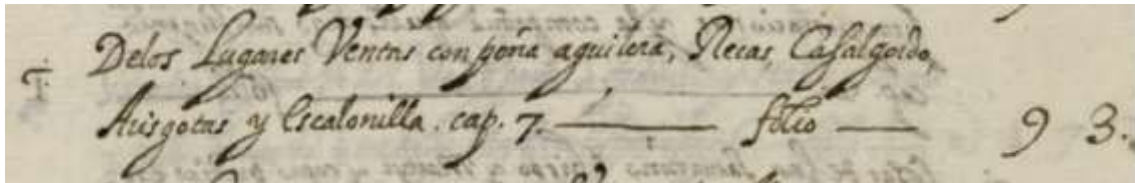 Delos Lugares Ventas con peña aguilera, Recas, Casalgordo,
Arisgotas y escalonilla. cap. 7. folio 9 3.